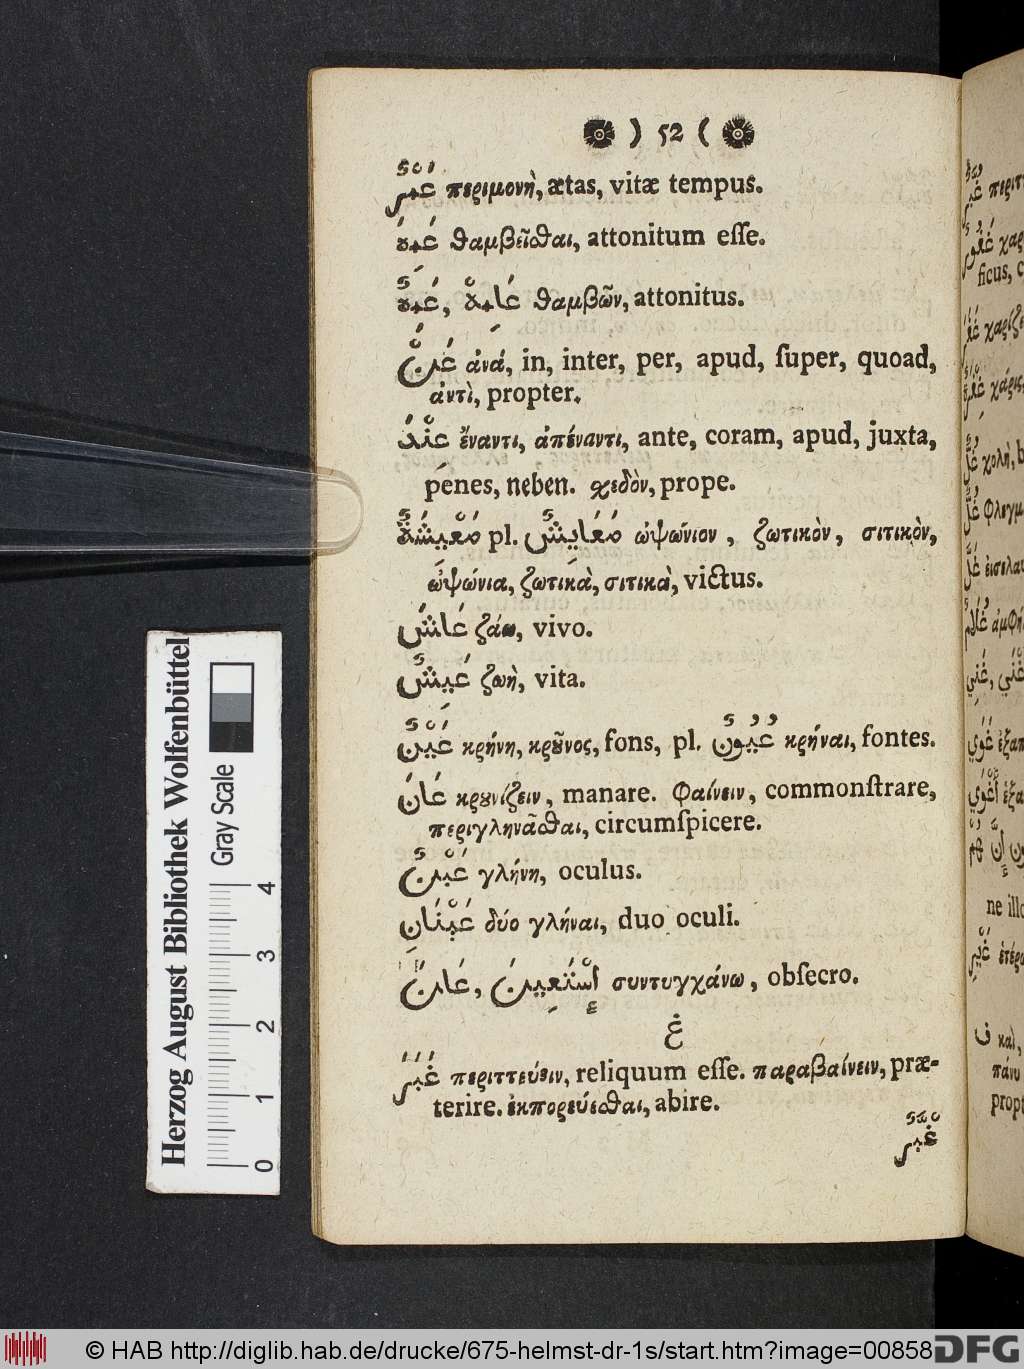 ) 52 (
عُمْرٌ περιμονὴ, ætas, vitæ tempus.
عَمِهَ θαμβεῖσθαι, attonitum eſſe.
عَمِهٌ, عَامِهٌ θαμβῶν, attonitus.
عَنْ ἀνά, in, inter, per, apud, ſuper, quoad,
ἀντὶ, propter.
عِنْدَ ἔναντι, ἀπέναντι, ante, coram, apud, juxta,
penes, neben. σχεδὸν, prope.
مَعْيِشَةٌ pl. مَعَايِشٌ ὠψώνιον, ζωτικὸν, σιτικὸν,
ὠψώνια, ζωτικὰ, σιτικὰ, victus.
عَاشَ ζάω, vivo.
عَيِشٌ ζωὴ, vita.
عَيْنٌ κρήνη, κρȣ͂νος, fons, pl. عُيُونٌ κρήναι, fontes.
عَانَ κρȣνίζειν, manare. φαίνειν, commonſtrare,
περιγληνᾶσθαι, circumſpicere.
عَيْنٌ γλήνη, oculus.
عَيْنَانِ δύο γλήναι, duo oculi.
عَانَ, إِسْتَعِينَ συντυγχάνω, obſecro.
غ
غَبَرَ περιττεύειν, reliquum eſſe. παραβαίνειν, præ-
terire. ἐκπορεύεσθαι, abire.
غبر
Herzog August Bibliothek Wolfenbüttel
Gray Scale
0 1 2 3 4
© HAB http://diglib.hab.de/drucke/675-helmst-dr-1s/start.htm?image=00858
DFG